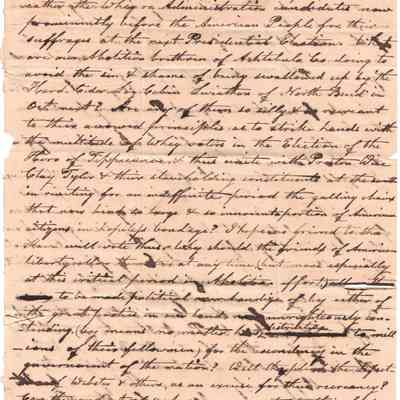 the Whig or Administration candidates now
prominently before the American People for their
suffrages at the next Presidential Election. What
are our Abolition brethren of Ashtabula Co. doing to
avoid the sin & shame of being swallowed up by the
Hard Cider Log Cabin of North Bend in
Oct next? Are any of them so silly & so recreant
to their avowed principles as to strike hands with
the multitude of Whig voters in the Election of the
Hero of Tippecanoe & thus unite with Preston Wise
Clay Tyler & their slaveholding constituents at the south
in riveting for an indefinite period the galling chains
that now bind so large & so a portion of American
citizens in hopeless bondage? I hope no friend to the
slave will vote Why should the friends of American
liberty at any time, (but more especially
at this critical period in Abolition effort)
to be made political merchandize of by either of
the great parties in our land unrighteously con-
tending (by means no matter to mill
ions of their fellowmen) for the ascendency in the
government of the nation? Will they in the
of Webster & others, as an excuse for their recreancy?